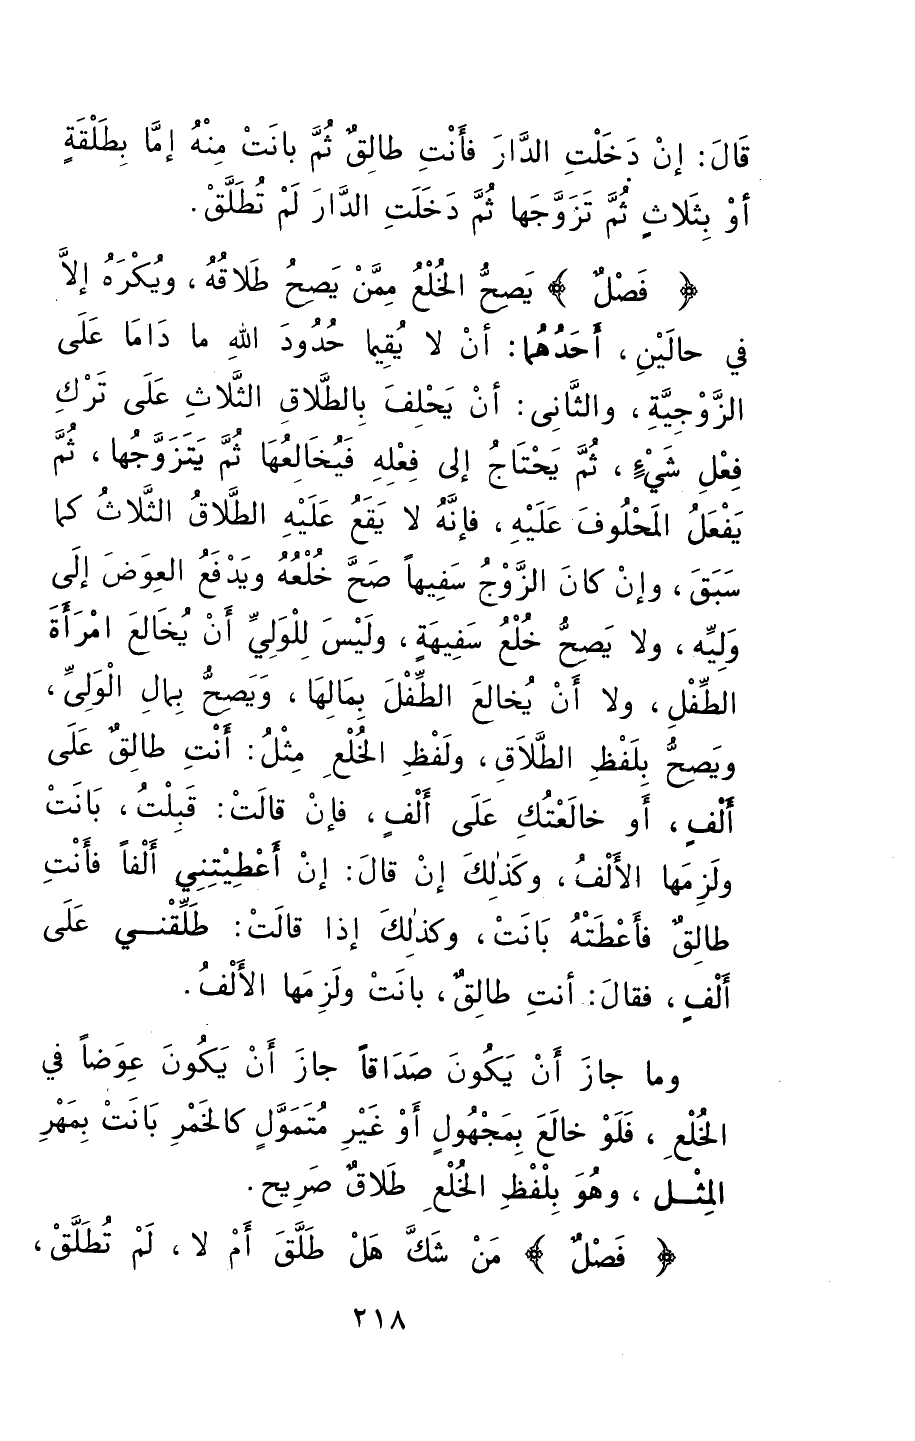 قَالَ: إنْ دَخَلْتِ الدَّارَ فأَنْتِ طالِقٌ ثُمَّ بانَتْ مِنْهُ إمَّا بِطَلْقَةٍ
أوْ بِثَلاثٍ ثُمَّ تَزَوَّجَها ثُمَّ دَخَلَتِ الدَّارَ لَمْ تُطَلَّقْ.
﴿ فَصْلٌ ﴾ يَصِحُّ الخُلْعُ مِمَّنْ يَصِحُ طَلَاقُهُ، ويُكْرَهُ إلاَّ
في حالَيْنِ، أَحَدُهُما: أنْ لا يُقِيما حُدُودَ اللهِ ما دَامَا عَلَى
الزَّوْجِيَّةِ، والثَّانِى: أنْ يَحْلِفَ بِالطَّلاقِ الثَّلاثِ عَلَى تَرْكِ
فِعْلِ شَيْءٍ، ثُمَّ يَحْتَاجُ إلى فِعْلِهِ فَيُخَالِعُهَا ثُمَّ يَتَزَوَّجُها، ثُمَّ
يَفْعَلُ المَحْلُوفَ عَلَيْهِ، فإنَّهُ لا يَقَعُ عَلَيْهِ الطَّلاقُ الثَّلاثُ كما
سَبَقَ، وإنْ كانَ الزَّوْجُ سَفِيهاً صَحَّ خُلْعُهُ ويَدْفَعُ العِوَضَ إلَى
وَلِيِّه، ولا يَصِحُّ خُلْعُ سَفِيهَةٍ، ولَيْسَ لِلْوَلِيِّ أَنْ يُخَالعَ امْرَأَةَ
الطِّفْلِ، ولا أَنْ يُخالعَ الطِّفْلَ بِمَالِهَا، وَيَصِحُّ بِمالِ الْوَلِيِّ،
ويَصِحُّ بِلَفْظِ الطَّلَاقِ، ولَفْظِ الخُلْعِ مِثْلُ: أَنْتِ طالِقٌ عَلَى
أَلْفٍ، أَو خالَعْتُكِ عَلَى أَلْفٍ، فإنْ قالَتْ: قَبِلْتُ، بَانَتْ
ولَزِمَها الأَلْفُ، وكَذٰلِكَ إنْ قالَ: إنْ أَعْطِيْتِنِي أَلْفاً فأَنْتِ
طالِقٌ فأَعْطَتْهُ بَانَتْ، وكذٰلِكَ إذا قالَتْ: طَلِّقْنــي عَلَى
أَلْفٍ، فقالَ: أنتِ طالِقٌ، بانَتْ ولَزِمَها الأَلْفُ.
وما جازَ أَنْ يَكُونَ صَدَاقاً جازَ أَنْ يَكُونَ عِوَضاً في
الخُلْعِ، فَلَوْ خالَعَ بِمَجْهُولٍ أَوْ غَيْرِ مُتَمَوَّلٍ كالخَمْرِ بَانَتْ بِمَهْرِ
المِثْــلِ، وهُوَ بِلْفْظِ الخُلْعِ طَلاقٌ صَرِيح.
﴿ فَصْلٌ ﴾ مَنْ شَكَّ هَلْ طَلَّقَ أَمْ لا، لَمْ تُطَلَّقْ،
٢١٨